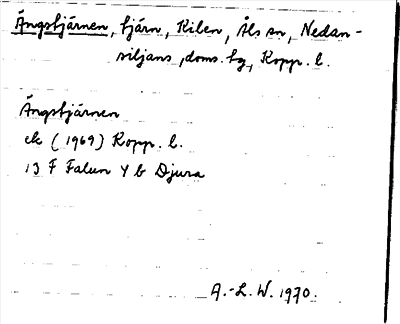 Ängstjärnen, tjärn, Kilen, Åls sn, Nedan-
siljans, doms. hg, Kopp. l.
Ängstjärnen
ek (1969) Kopp. l.
13 F Falun 4 b Djura
A.-L. W. 1970.